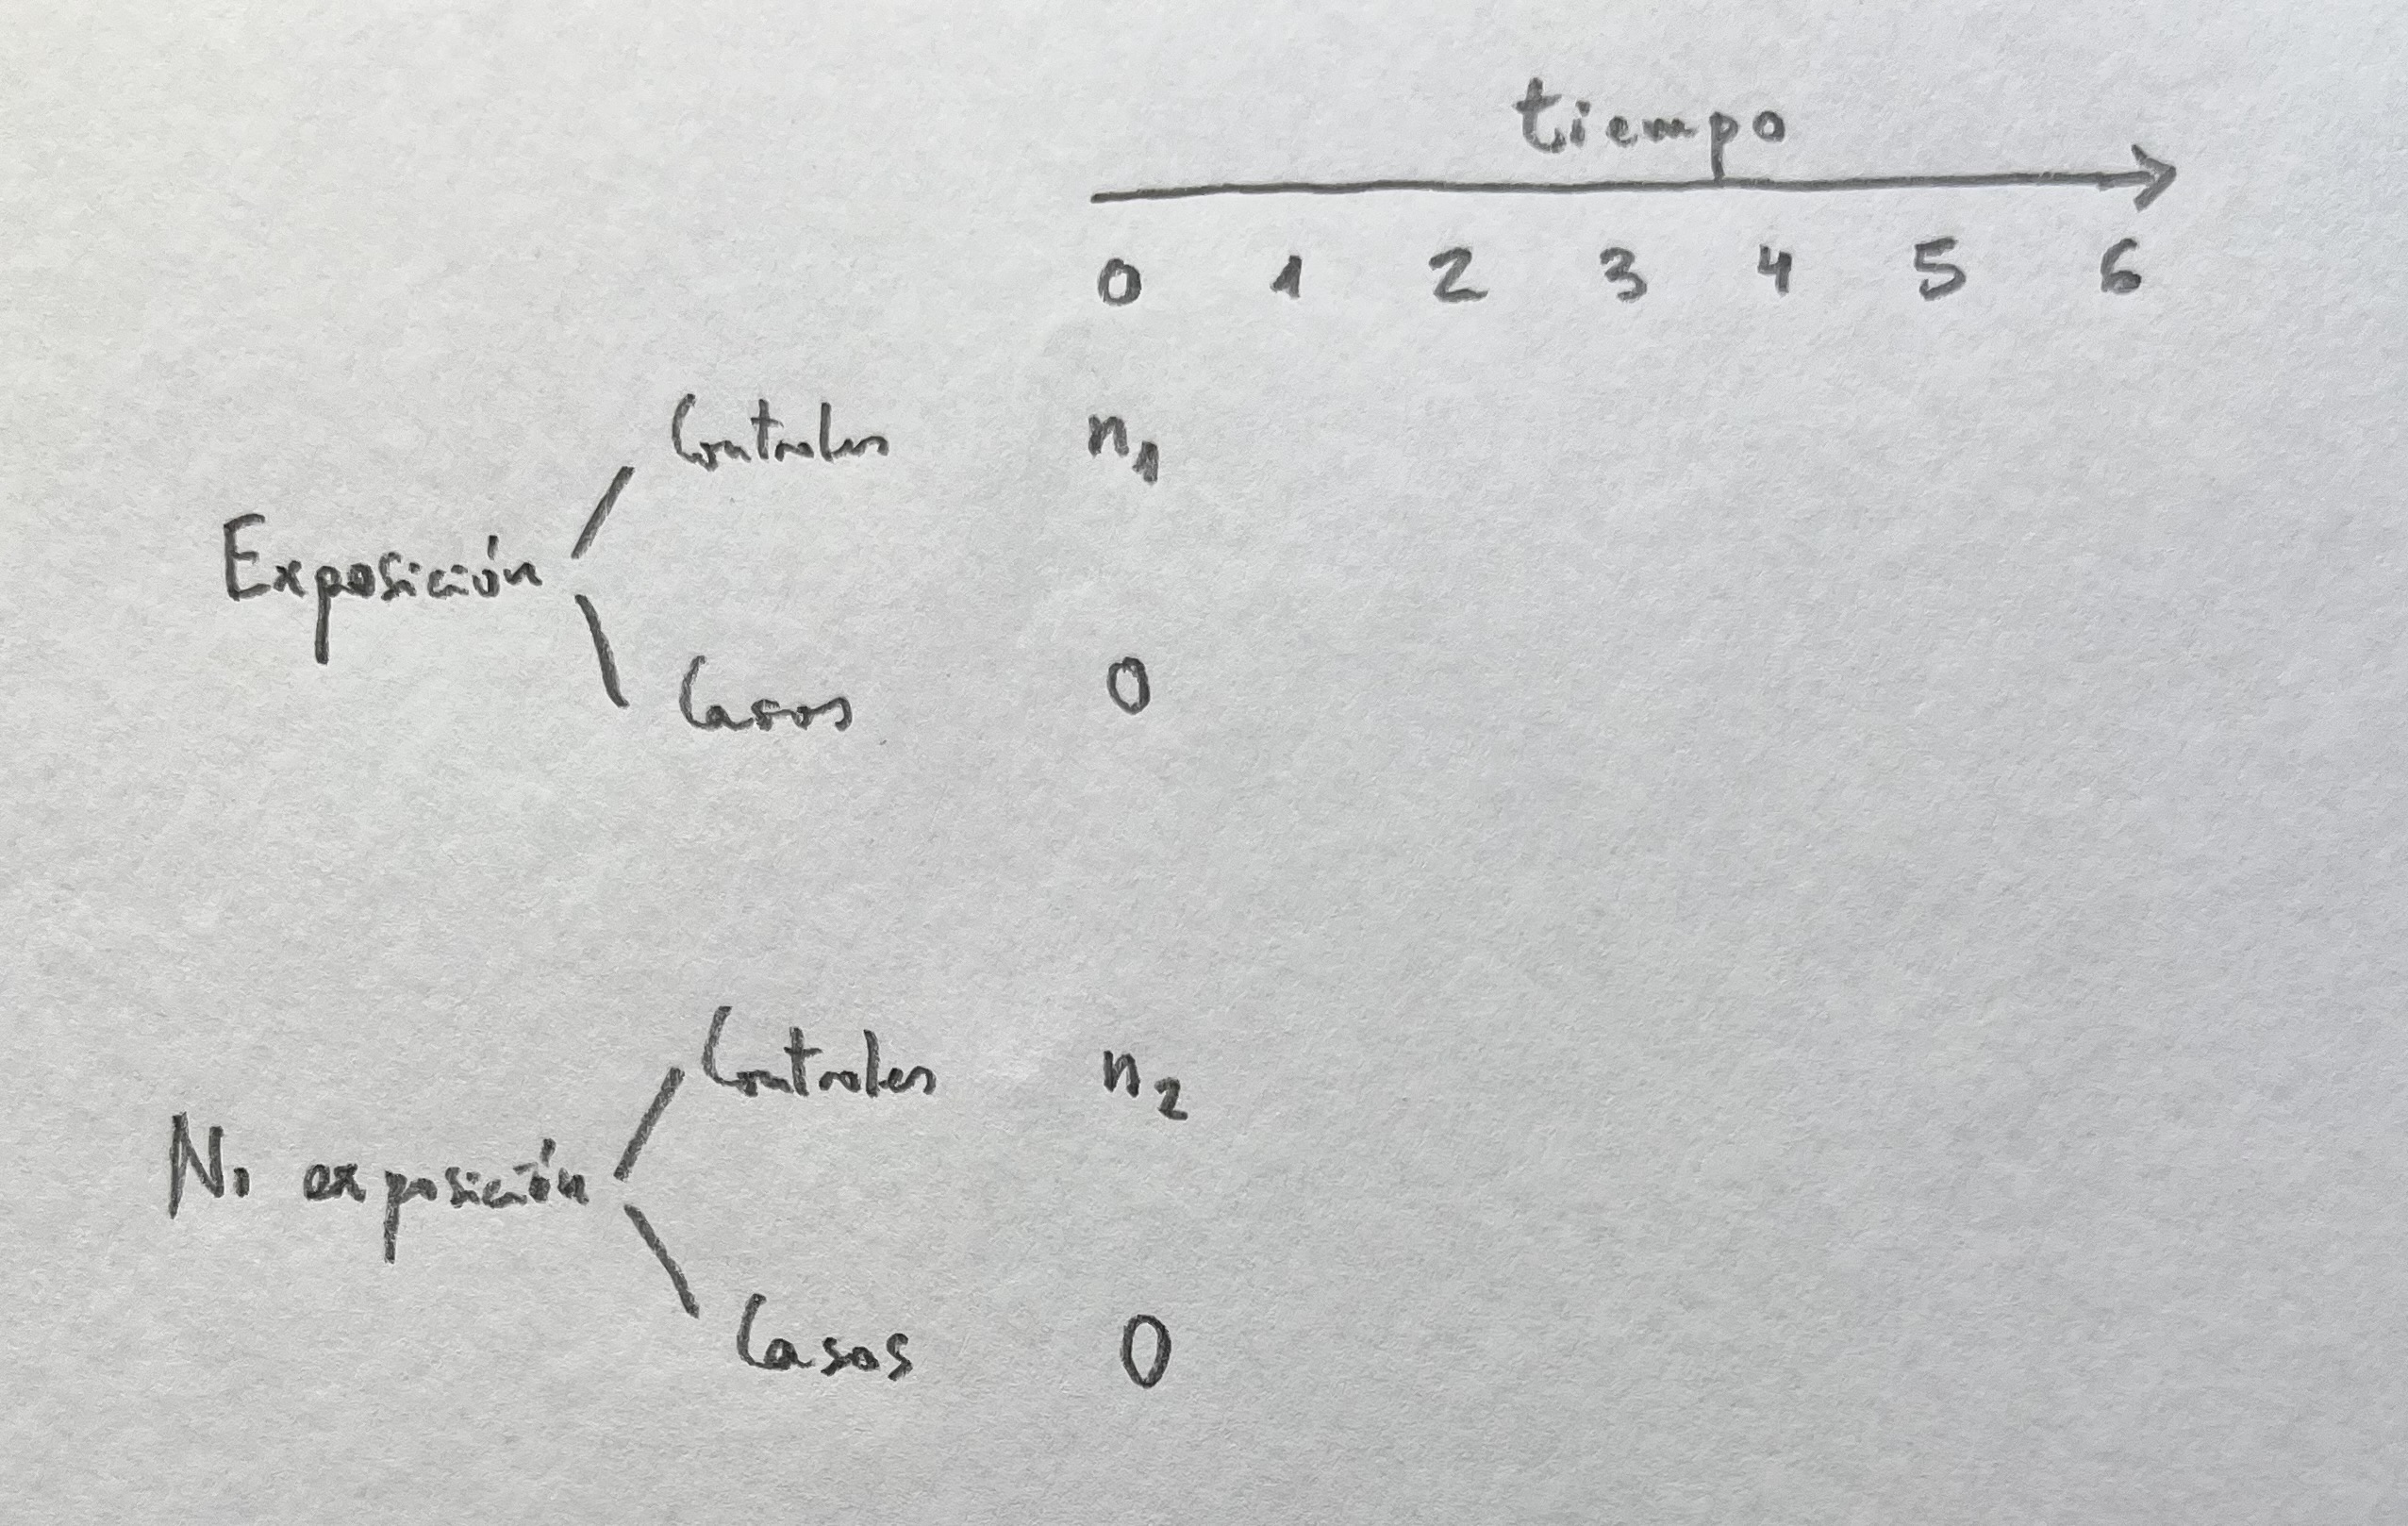 tiempo
0 1 2 3 4 5 6
Controles n₁
Exposición
Casos 0
Controles n₂
No exposición
Casos 0